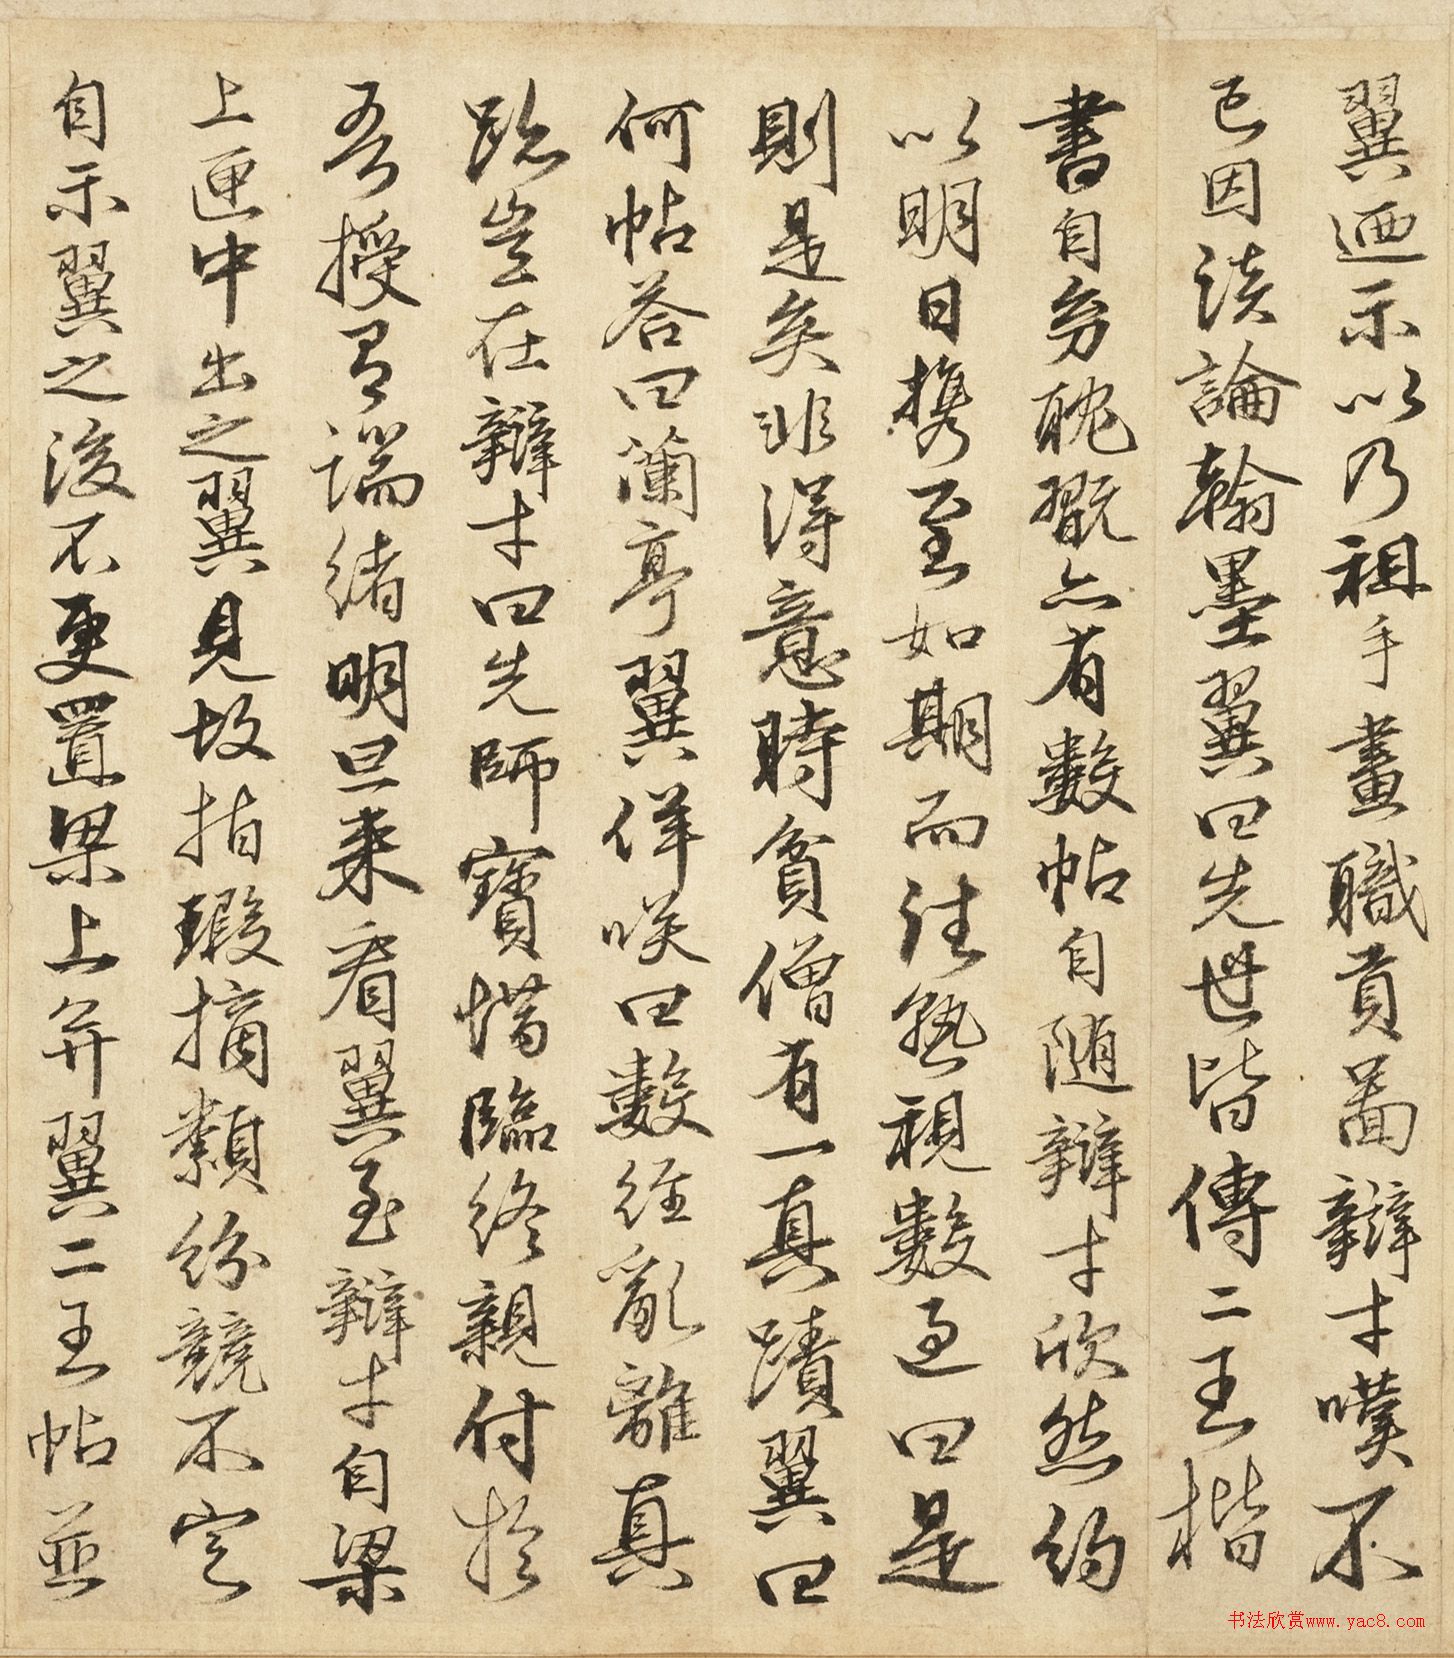 翼迺示以乃祖手畫職貢啚辯才嘆不
已因談論翰墨翼曰先世皆傳二王楷
書自幼耽翫亦有數帖自随辯才欣然約
以明日携至如期而往熟視數過曰是
則是矣非得意時貧僧有一真蹟翼曰
何帖荅曰蘭亭翼佯咲曰數經亂離真
跡豈在辯才曰先師寶惜臨終親付於
吾授有端緒明旦来看翼至辯才自梁
上匣中出之翼見故指瑕摘纇紛競不定
自示翼之後不更置梁上并翼二王帖並
书法欣赏www.yac8.com